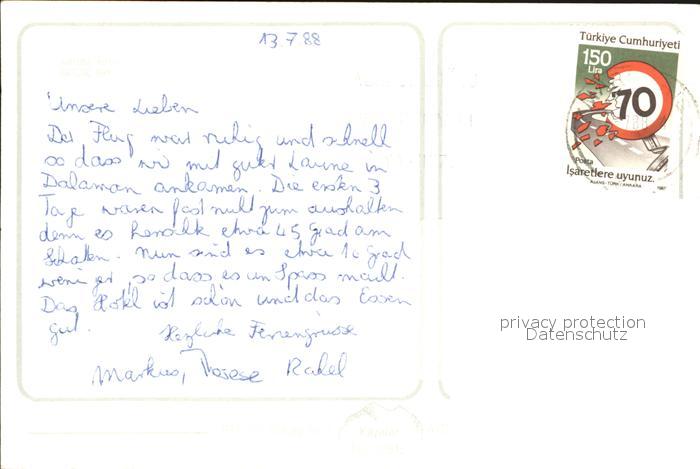 13.7.88
Unsere Lieben
Der Flug war ruhig und schnell
so dass wir mit guter Laune in
Dalaman ankamen. Die ersten 3
Tage waren fast nicht zum aushalten
denn es herschte etwa 45 Grad am
Schatten. Nun sind es etwa 10 Grad
weniger, so dass es un Spass macht.
Das Hotel ist schön und das Essen
gut.
Herzliche Feriengrüsse
Markus, Therese Rahel
Türkiye Cumhuriyeti
150
Lira
70
Posta
İşaretlere uyunuz.
AJANS-TÜRK/ANKARA 1987
privacy protection
Datenschutz